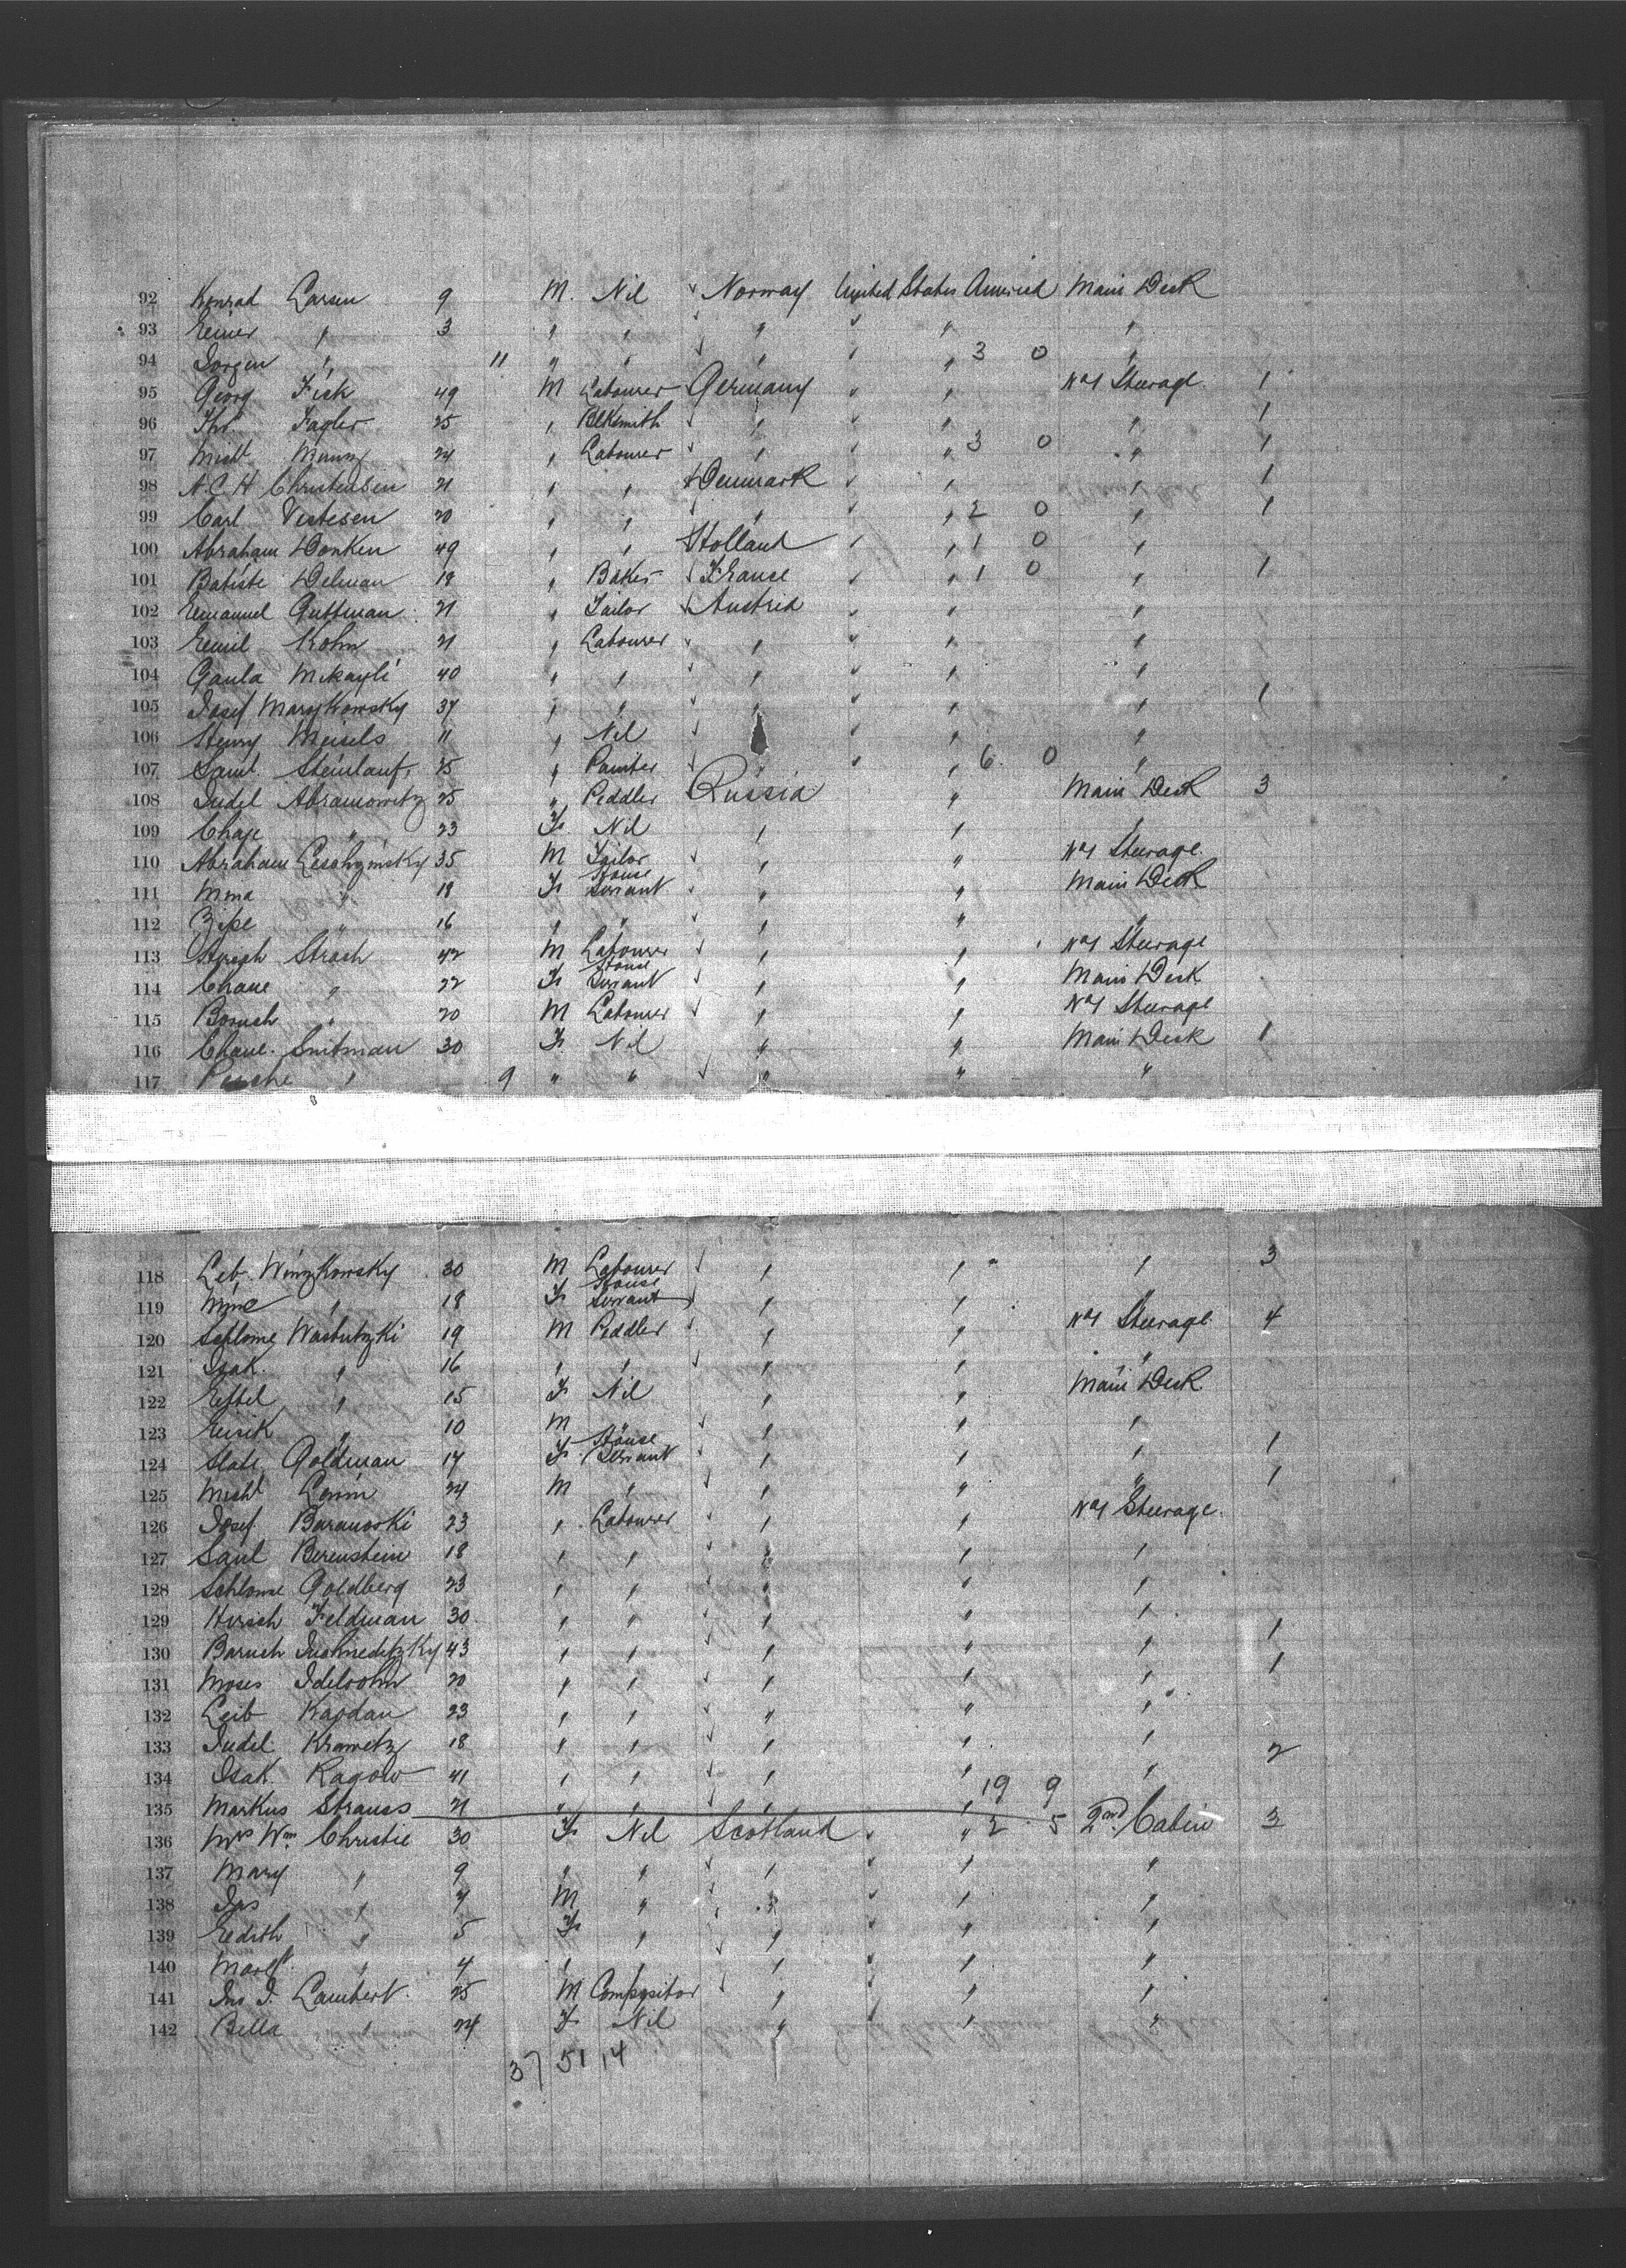 92 Konrad Larsen 9 M. Nil Norway United States America Main Deck
93 Einer " 3 " " " " "
94 Jorgen " 11 " " " " 3 0 "
95 Georg Fick 49 M Labourer Germany " No 1 Steerage 1
96 Fagler 25 " Blksmith " " " 1
97 Michl Munz 24 " Labourer " " 3 0 " 1
98 N. C. H Christensen 21 " " Denmark " " 1
99 Carl Vestesen 20 " " " " 2 0 " 1
100 Abraham Donken 49 " " Holland " 1 0 "
101 Batiste Delman 19 " Baker France " 1 0 " 1
102 Emanuel Guttman 21 " Tailor Austria " "
103 Emil Kohn 21 " Labourer " " "
104 Gaula Mikayli 40 " " " " "
105 Josef Marykowsky 37 " " " " " 1
106 Henry Meisels 11 " Nil " "
107 Saml. Steinlauf 25 " Painter " " 6 0 "
108 Judel Abramowitz 25 " Peddler Russia " Main Deck 3
109 Chaje " 23 F Nil " " "
110 Abraham 35 M Tailor " " No 1 Steerage
111 Mina " 18 F House Servant " " Main Deck
112 Zipe " 16 " " " " "
113 Hirsch Strach 42 M Labourer " " No 1 Steerage
114 Chane " 22 F House Servant " " Main Deck
115 Boruch " 20 M Labourer " " No 1 Steerage
116 Chane Snitman 30 F Nil " " Main Deck 1
117 Pesche " 9 " " " " "
118 Leb. Winzkowsky 30 M Labourer " " " 3
119 Mine " 18 F House Servant " " "
120 Schlome Wasbutzki 19 M Peddler " " No 1 Steerage 4
121 Isak " 16 " " " " "
122 Ettel " 15 F Nil " " Main Deck
123 Eisik " 10 M " " " "
124 Slate Goldman 17 F House Servant " " " 1
125 Michl Levin 24 M " " " " 1
126 Josef Baranoski 23 " Labourer " " No 1 Steerage
127 Saul Berenstein 18 " " " " "
128 Schlome Goldberg 23 " " " " "
129 Hirsch Feldman 30 " " " " "
130 Baruch 43 " " " " " 1
131 Moses Idelsohn 20 " " " " " 1
132 Leib Kagdan 23 " " " " "
133 Judel Krawetz 18 " " " " "
134 Isak Kagow 41 " " " " " 2
135 Markus Strauss 21 " " " " 19 9
136 Mrs Wm Christie 30 F Nil Scotland " 2 5 2nd Cabin 3
137 Mary " 9 " " " " "
138 Jas " 7 M " " " "
139 Edith " 5 F " " " "
140 " 4 " " " "
141 Jno J. Lambert 25 M Compositor " " "
142 Bella " 24 F Nil " " "
37 51 14